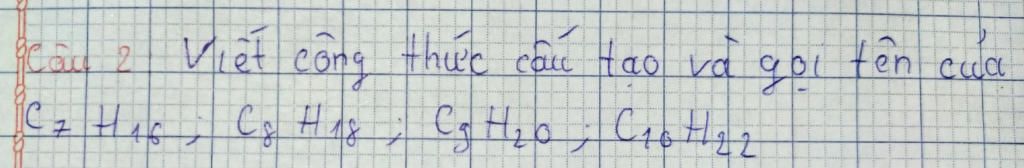 Câu 2 Viết công thức cấu tạo và gọi tên của
C₇H₁₆; C₈H₁₈; C₉H₂₀; C₁₀H₂₂